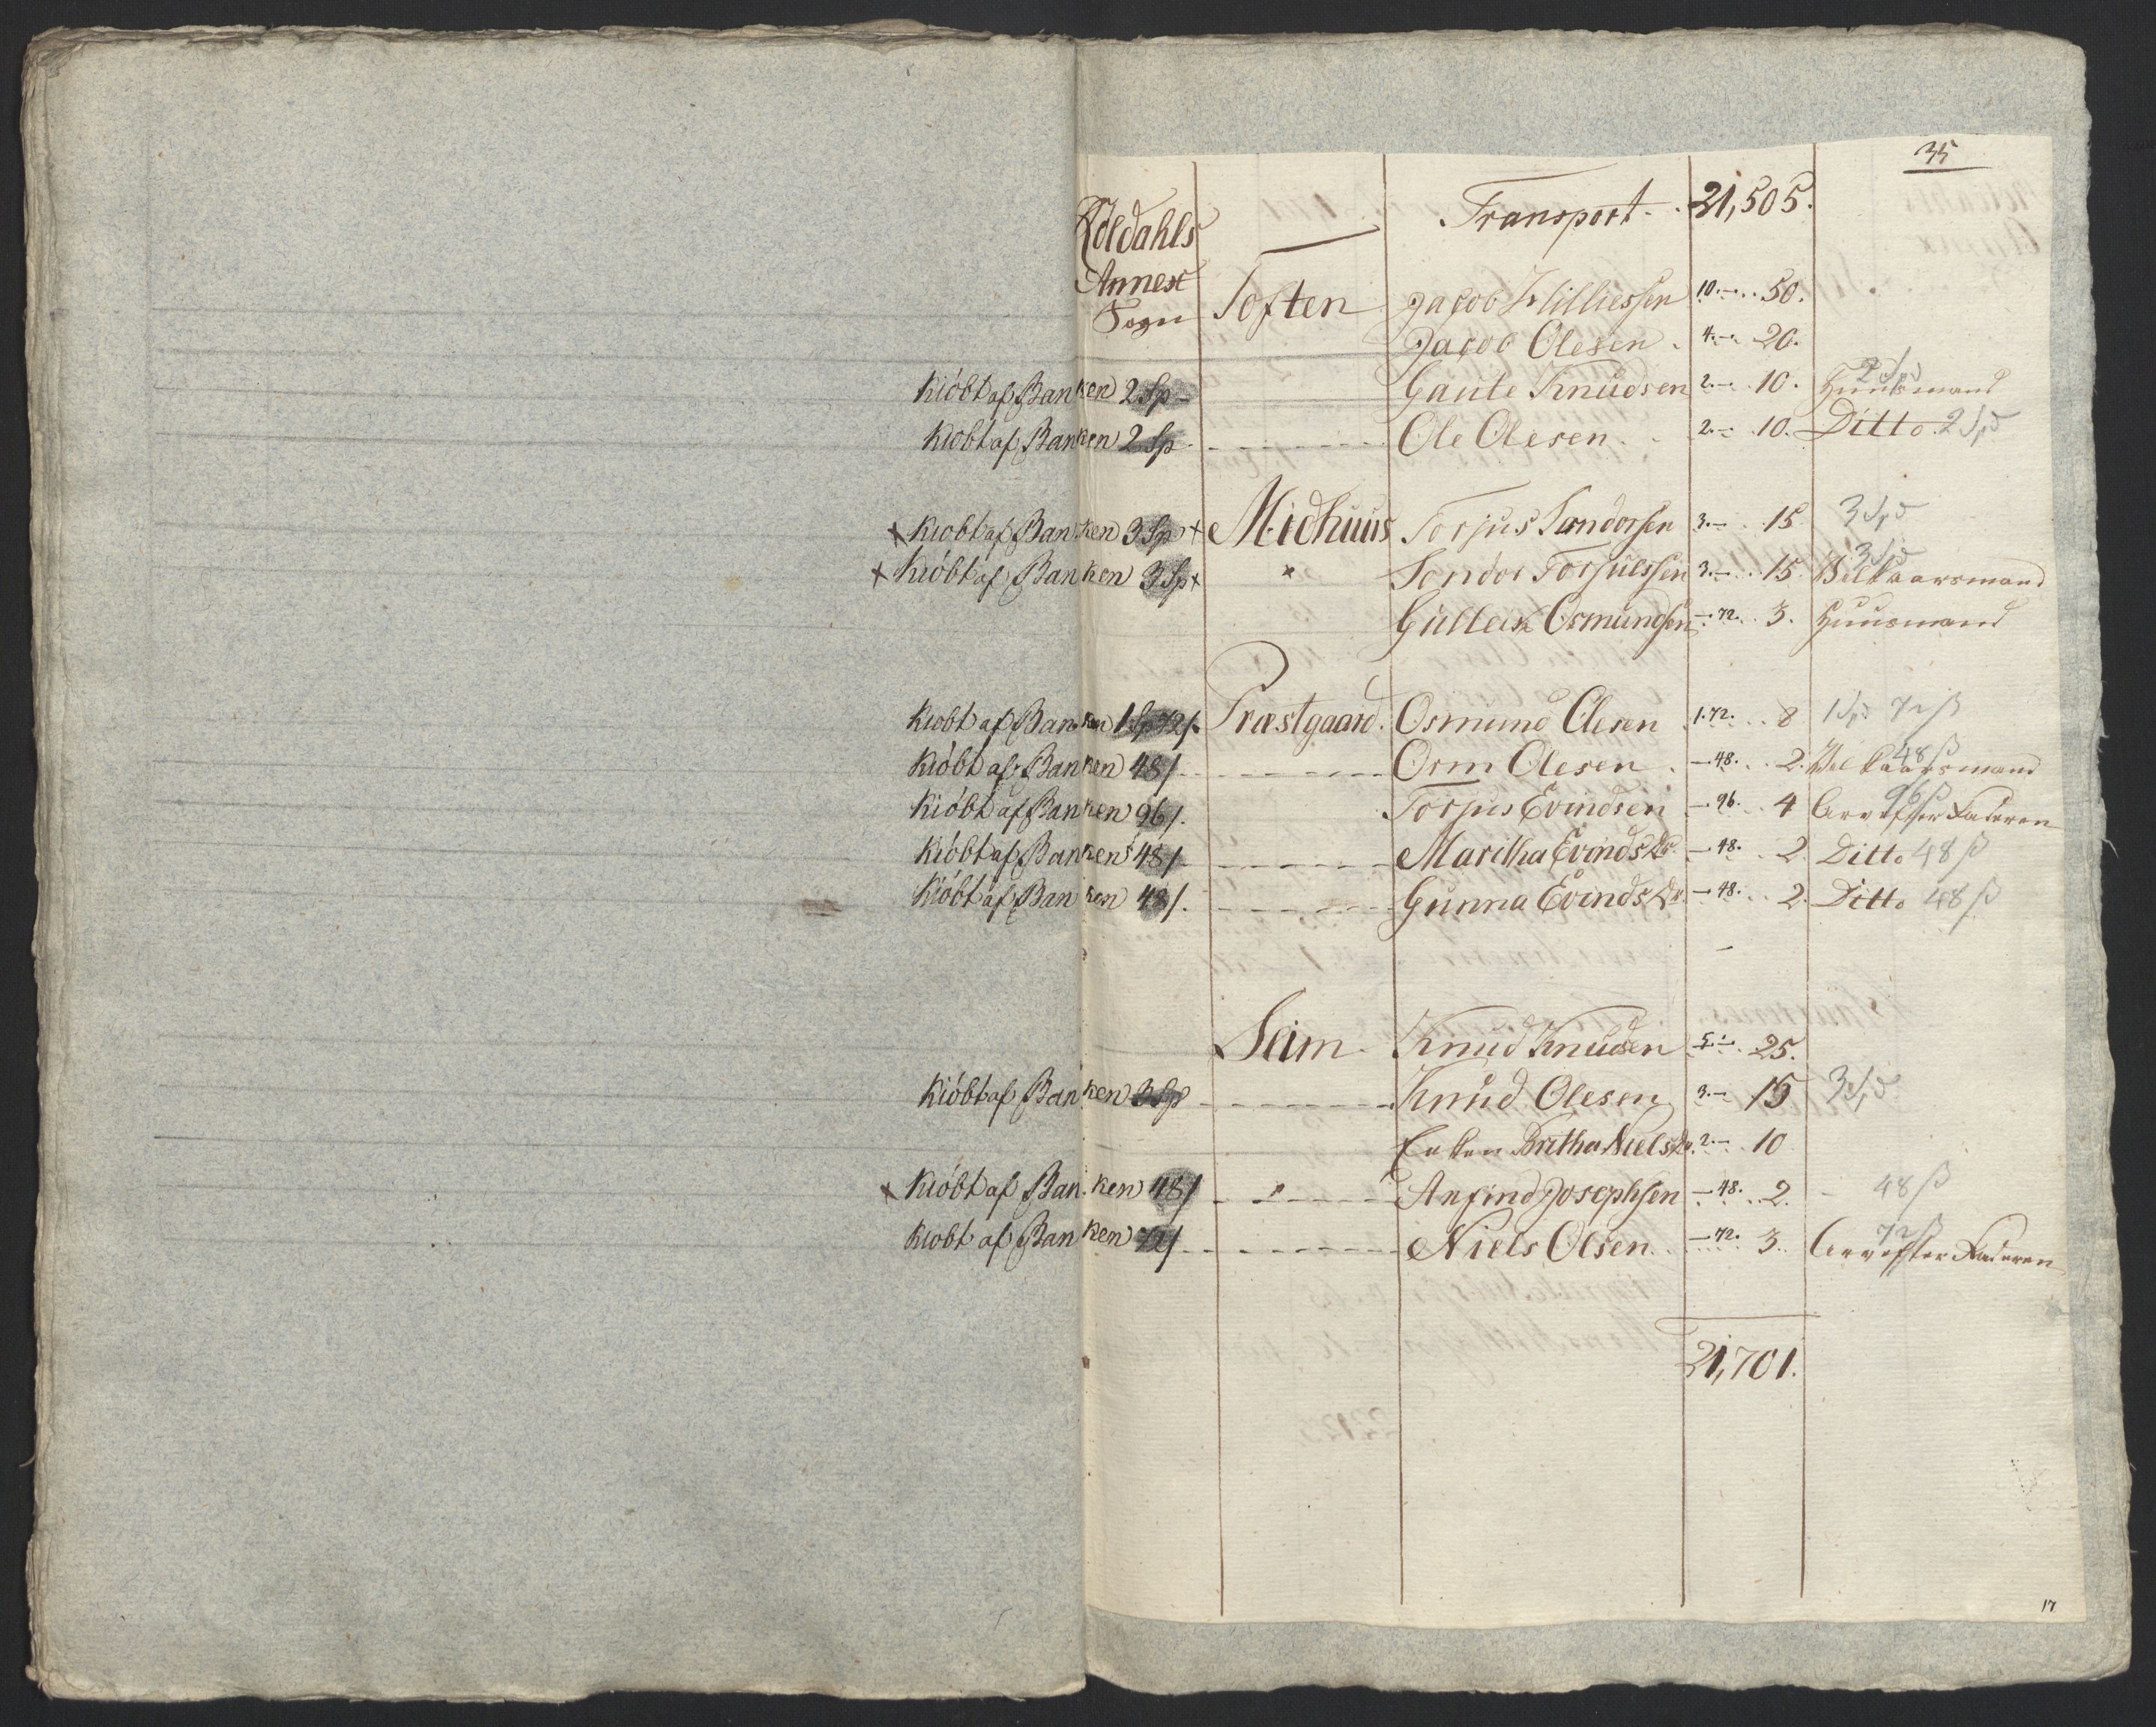 35
Transport . . 21,505.
Røldahls
Annex
Sogn
Toften Jacob Hilliessen 10.–. . 50.
Jacob Olesen . 4.–. 20.
Kióbt af Banken 2 Sp Gaute Knudsen 2.–. . 10. Huusmand 2 Spd
Kiobt af Banken 2 Sp Ole Olesen . . 2.–. 10. Ditto. 2 Spd
x Kiobt af Banken 3 Sp x Midhuus Torjus Sandorsen 3.– . 15 3 Spd
x Kióbt af Banken 3 Sp x x Sondor Torjuessen 3.– . . 15. Velkaarsmand 3 Spd
Gulleik Osmundsen –. 72. . 3. Huusmand
Kiobt af Banken 1 Sp 72 s. Præstgaard. Osmund Olesen 1. 72. . . 8 1 Spd 72 ß
Kióbt af Banken 48 s. Orm Olesen . – 48. . . 2. Velkaarsmand 48 ß
Kióbt af Banken 96 s. Torjus Evindsen – 96. . 4 Arv efter Faderen 96 ß
Kióbt af Banken 48 s. Maritha Evindsdr. – 48. . . 2. Ditto 48 ß
Kióbt af Banken 48 s. Gunna Evindsdr. – 48. . . 2. Ditto 48 ß
Seim. Knud Knudsen 5.–. . 25.
Kióbt af Banken 3 Sp Knud Olesen 3.– 15 3 Spd
Enken Britha Nielsdr. 2.– . 10
x Kióbt af Banken 48 s x Anfind Josephsen – 48. . . 2. 48 ß
Kiobt af Banken 72 s. Niels Olsen. . – 72. . 3. Arv efter Faderen 72 ß
21,701.
17